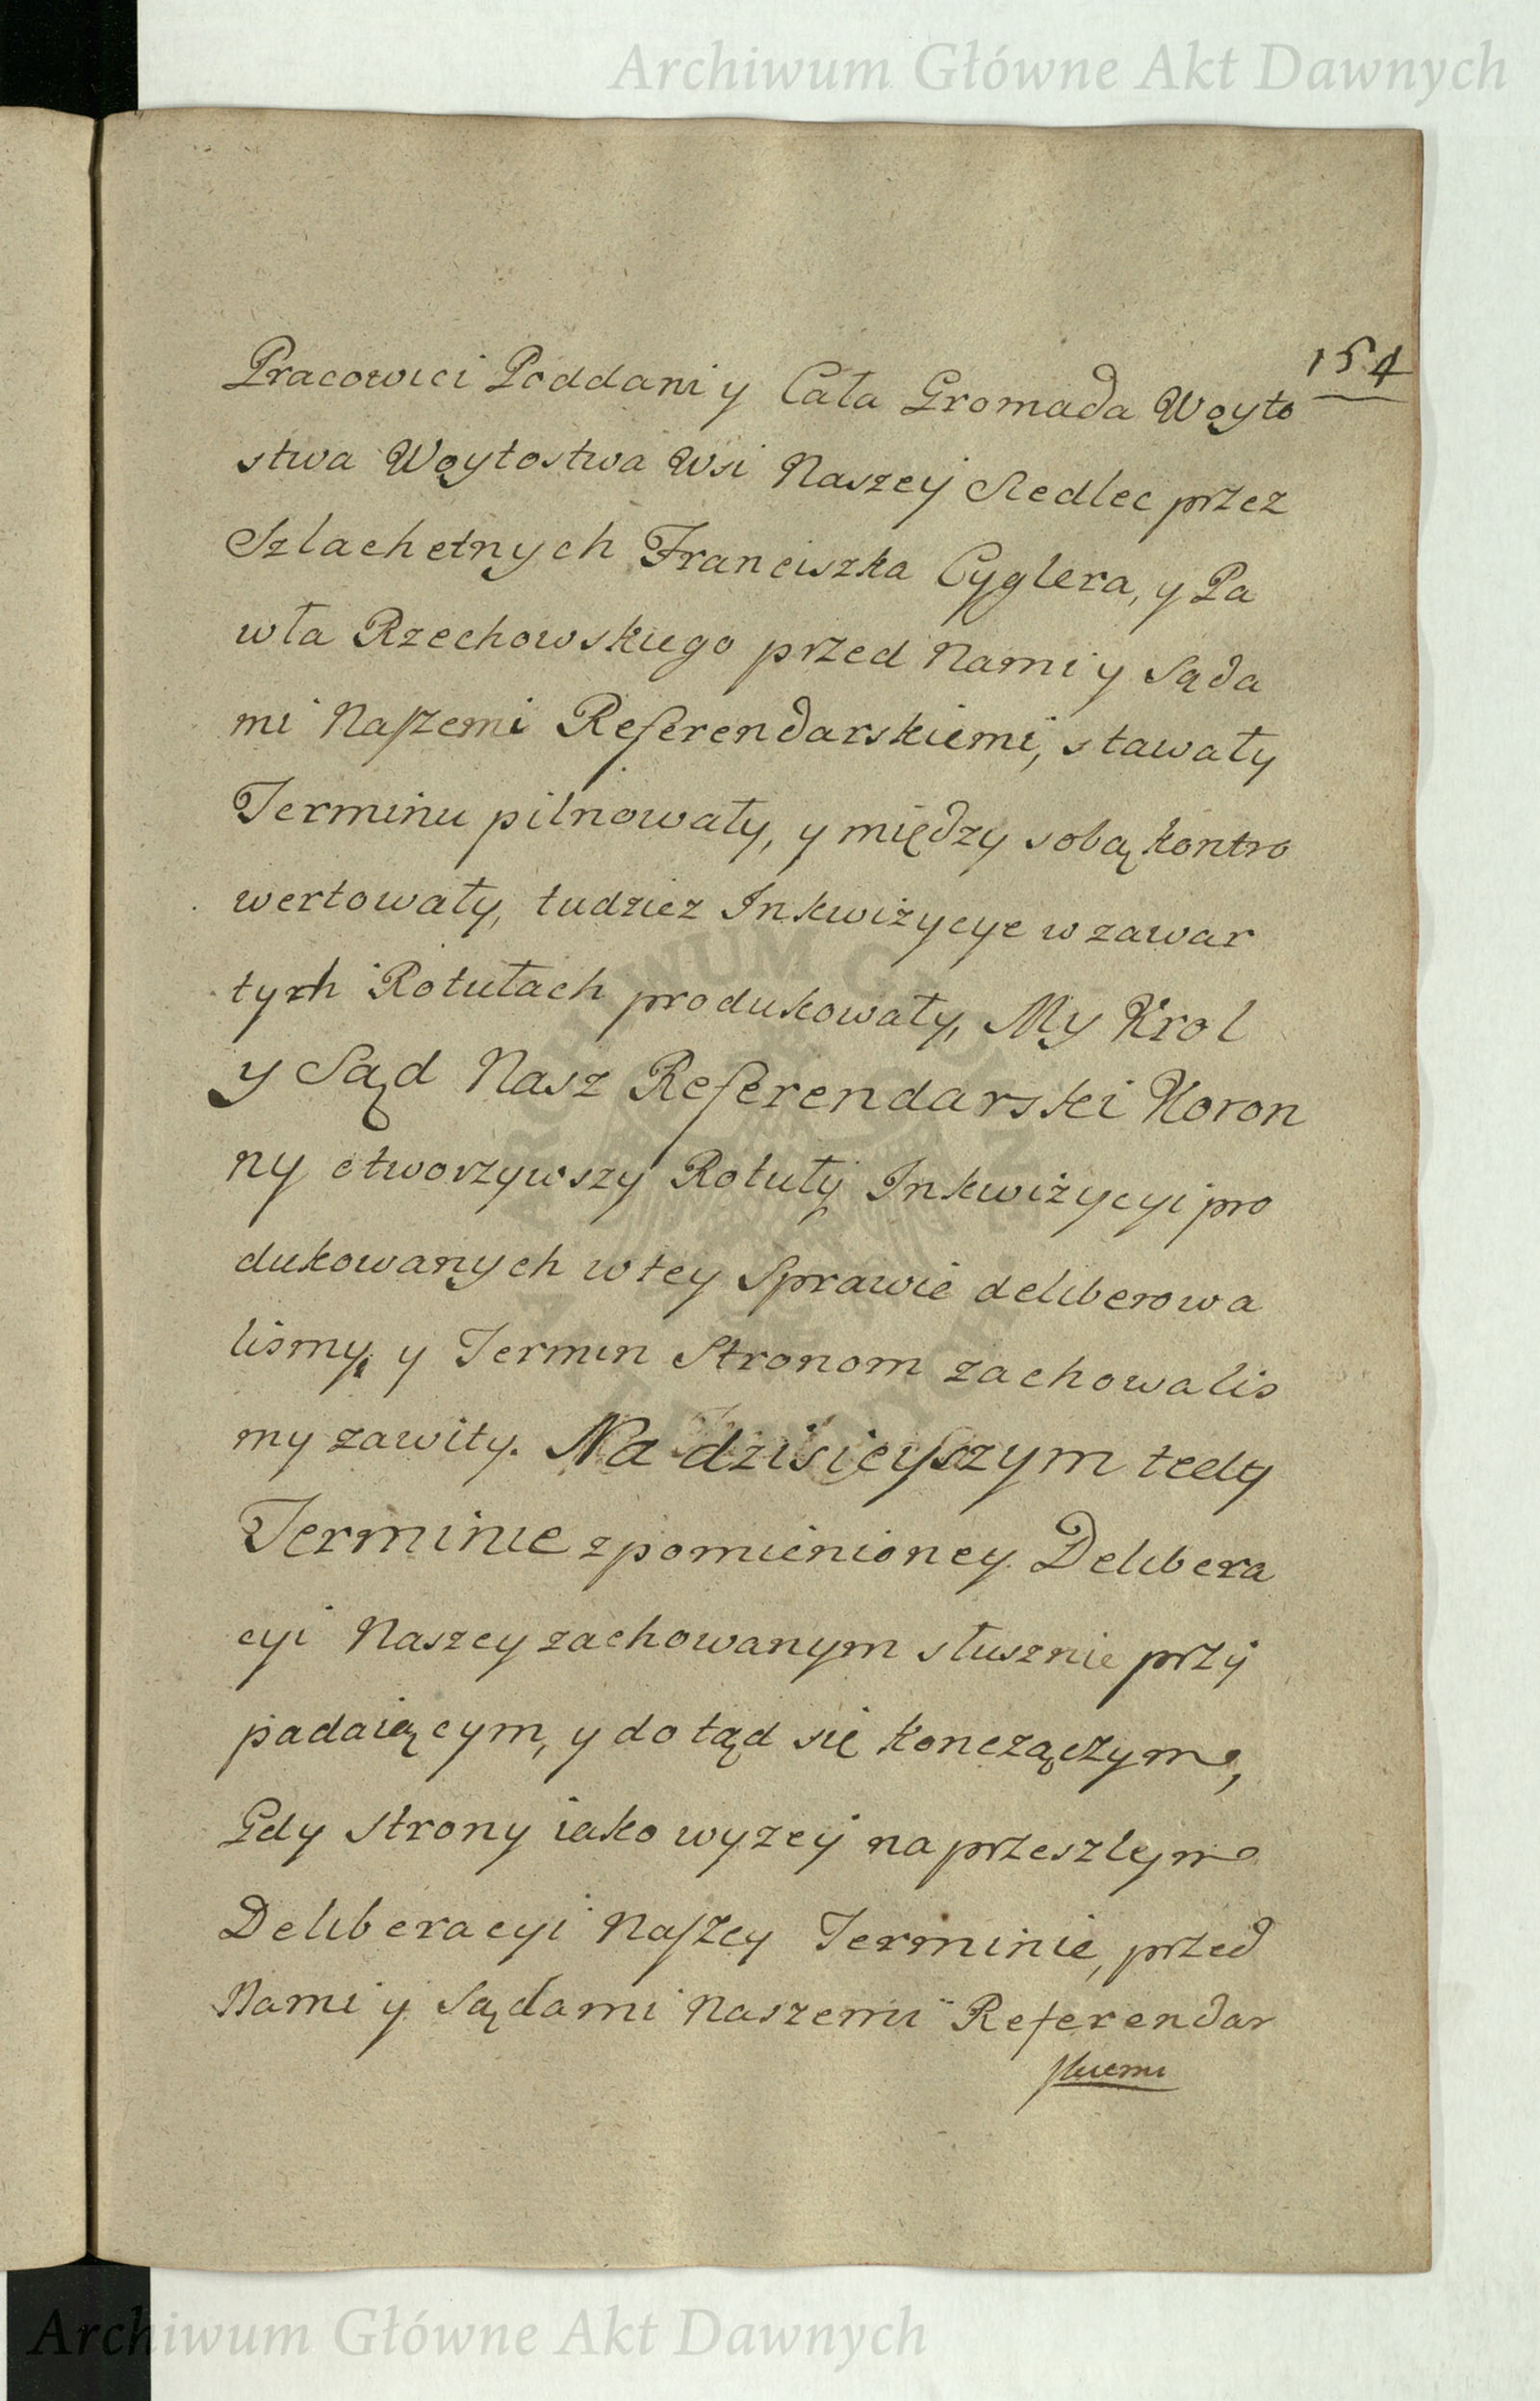 Archiwum Główne Akt Dawnych
154
Pracowici Poddani y Cała Gromada Woyto
stwa Woytostwa Wsi Naszey Siedlec przez
Szlachetnych Franciszka Cyglera, y Pa
wła Rzechowskiego przed Nami y Sąda
mi Naszemi Referendarskiemi, stawały
Terminu pilnowały, y między sobą kontro
wertowały, tudziez Inkwizycye w zawar
tych Rotułach produkowały, My Krol
y Sąd Nasz Referendarski Koron
ny otworzywszy Rotuły Inkwizycyi pro
dukowanych w tey Sprawie deliberowa
lismy, y Termin Stronom zachowalis
my zawity. Na dzisieyszym tedy
Terminie z pomienioney Delibera
cyi Naszey zachowanym słusznie przy
padaiącym, y dotąd się konczączym,
Gdy strony iako wyzey na przeszlym
Deliberacyi Naszey Terminie, przed
Nami y Sądami Naszemi Referendar
skiemi
Archiwum Główne Akt Dawnych